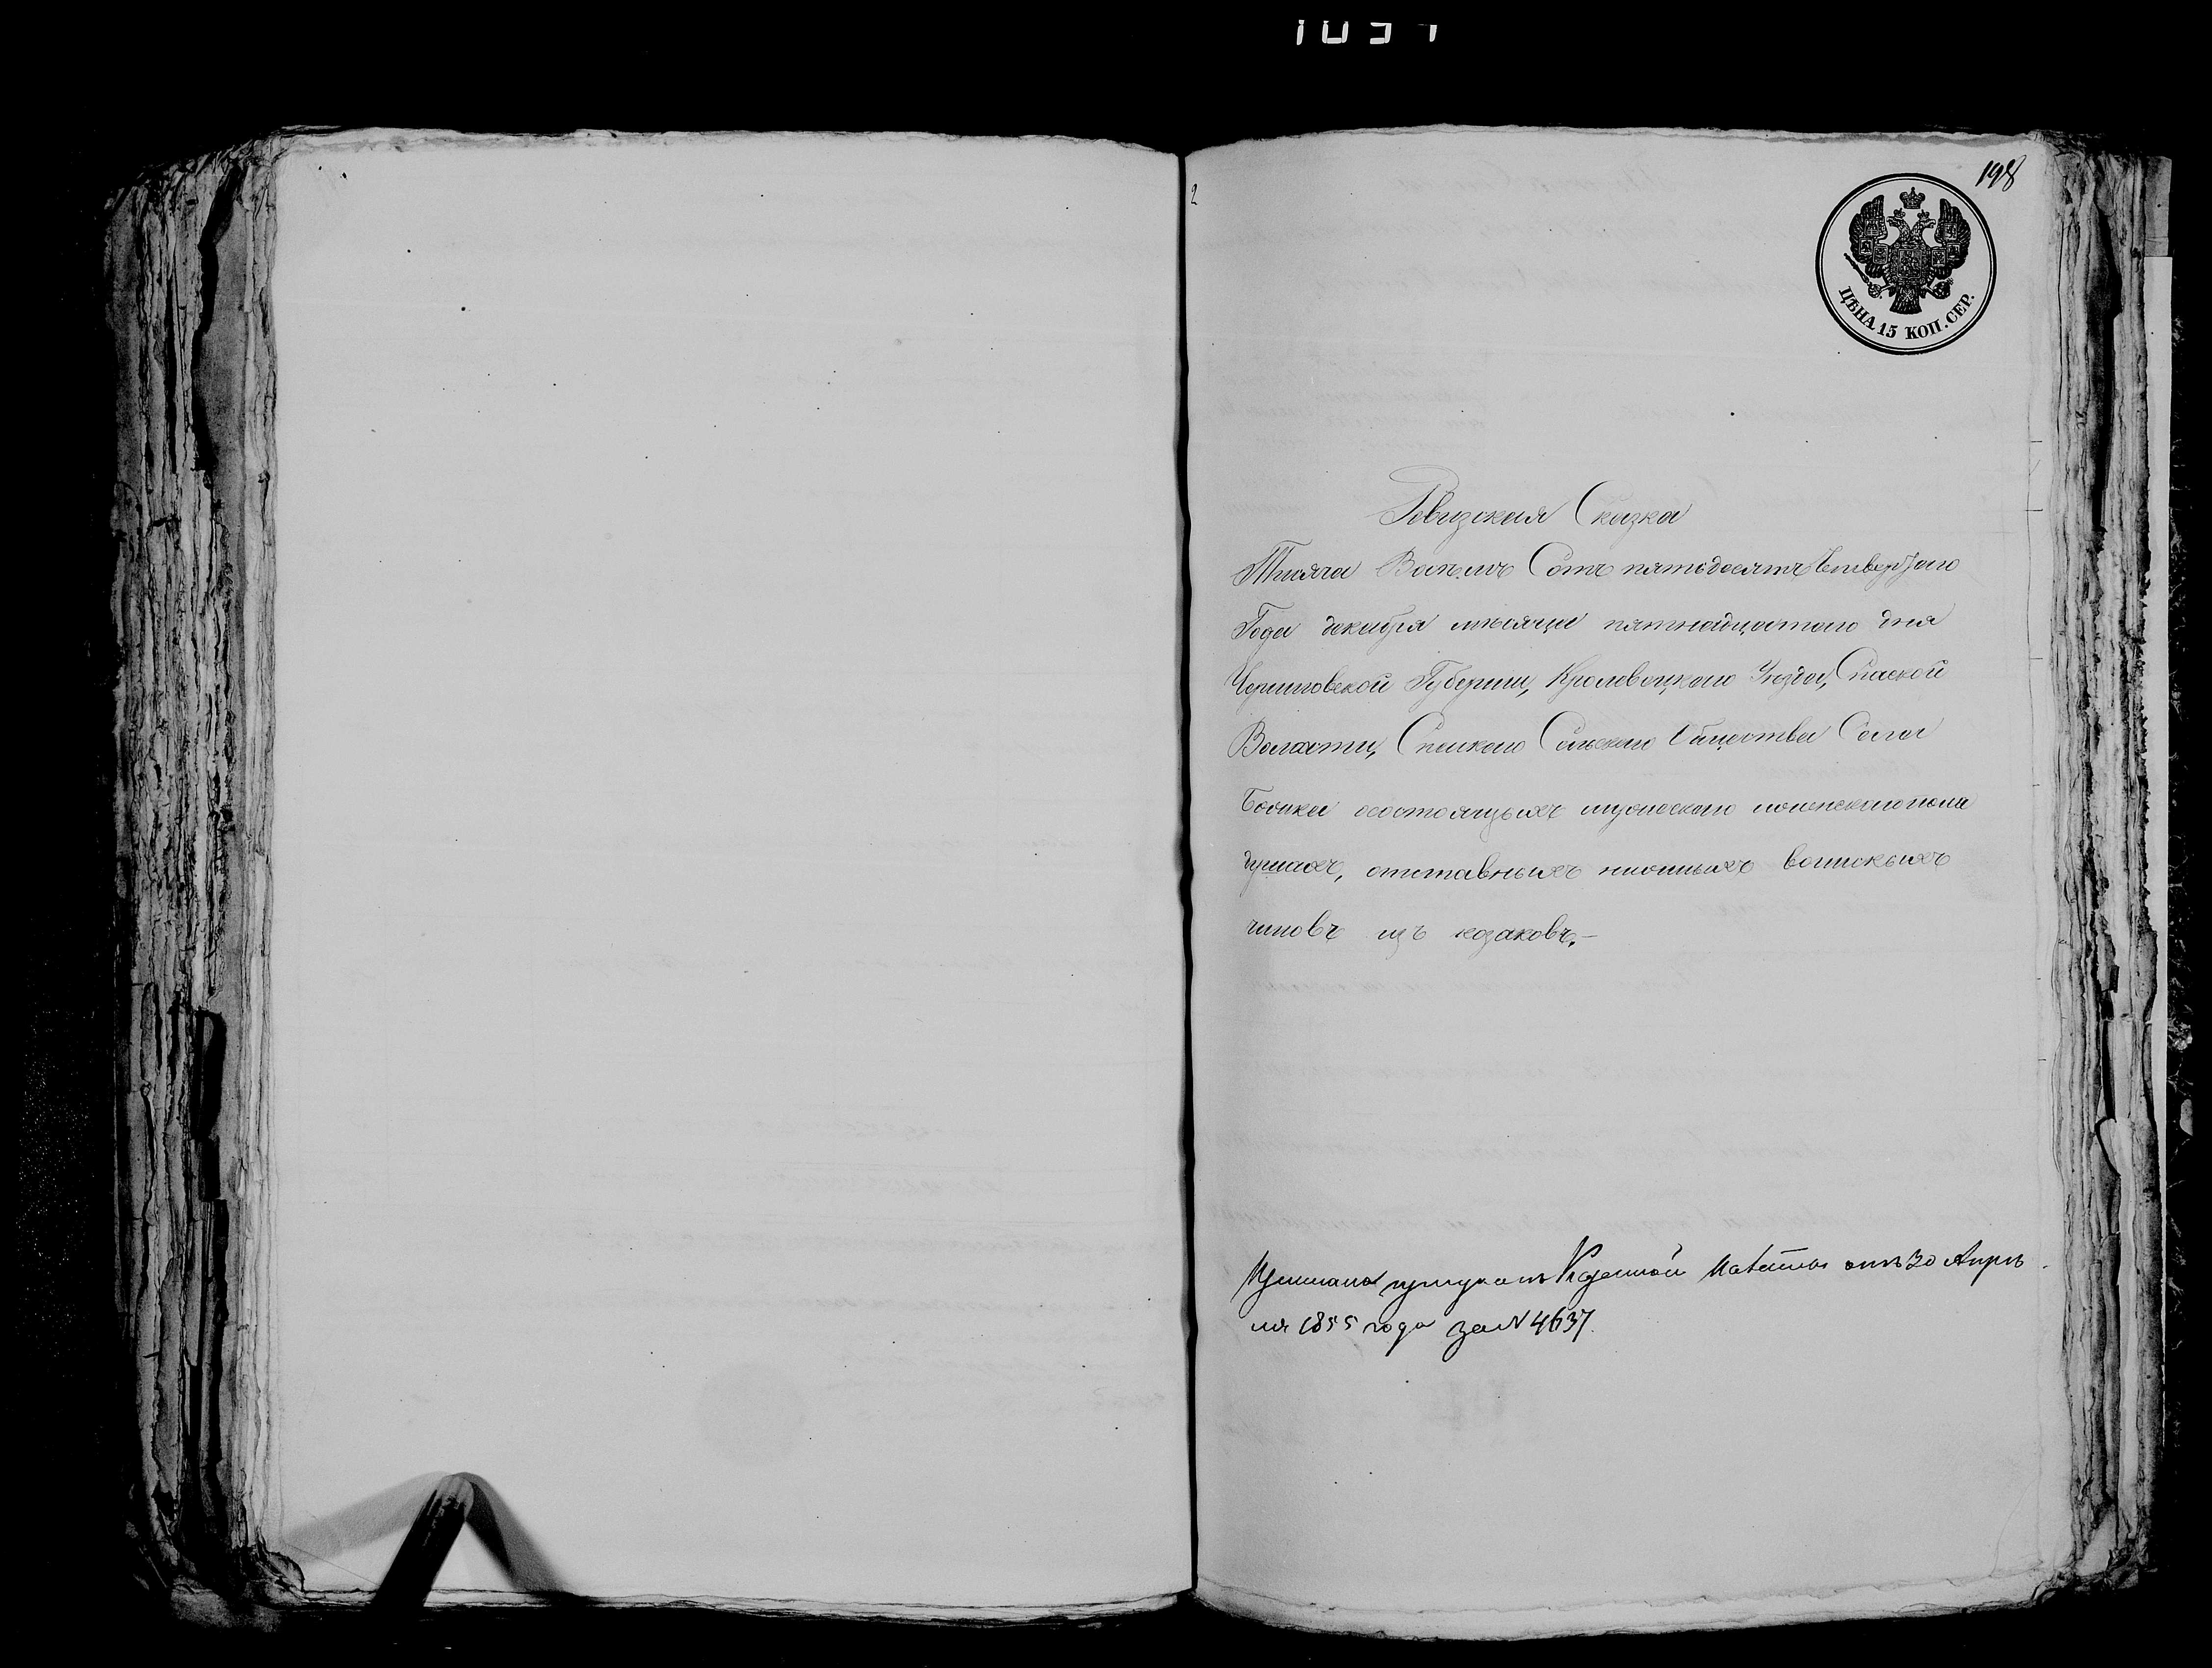 198
ЦѢНА 15 КОП. СЕР.
Ревизская Сказка
Тысяча Восемь Сотъ пятьдесятъ Четвертаго
Года декабря мѣсяца пятнадцатаго дня
Черниговской Губернии, Кролевецкаго Уезда, Спаской
Волости, Спаскаго Сельскаго Общества Села
состоящихъ мужескаго и женскаго пола
душахъ, отставныхъ нижныхъ воинскихъ
чиновъ изъ козаковъ.—
Казенной Палаты отъ 30 Апрѣ
ля 1855 года за N 4637.